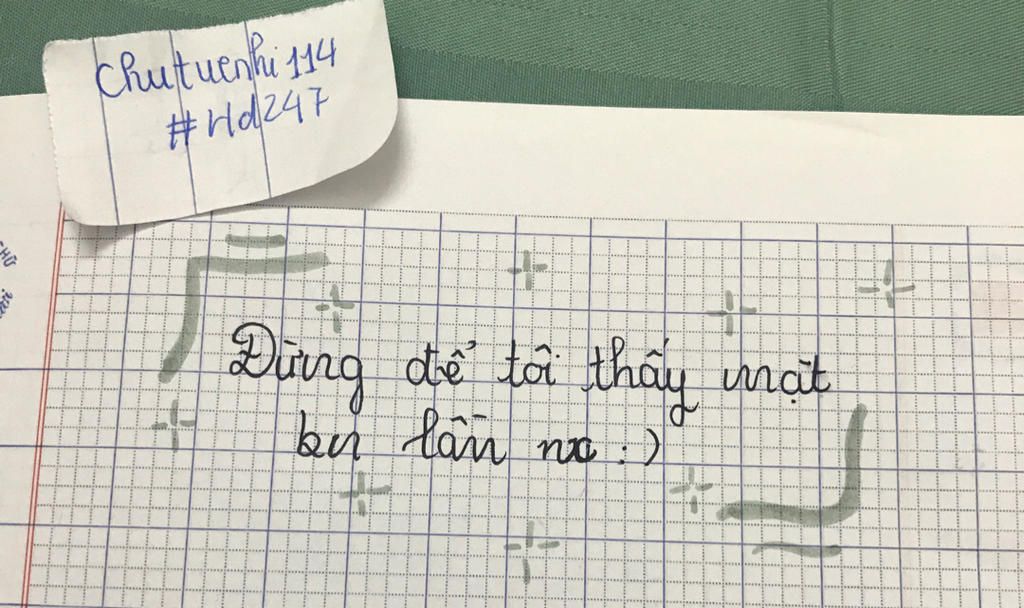 Chutuenhi114
#Hd247
Đừng để tôi thấy mặt
bn lần nx :)
CHỮ